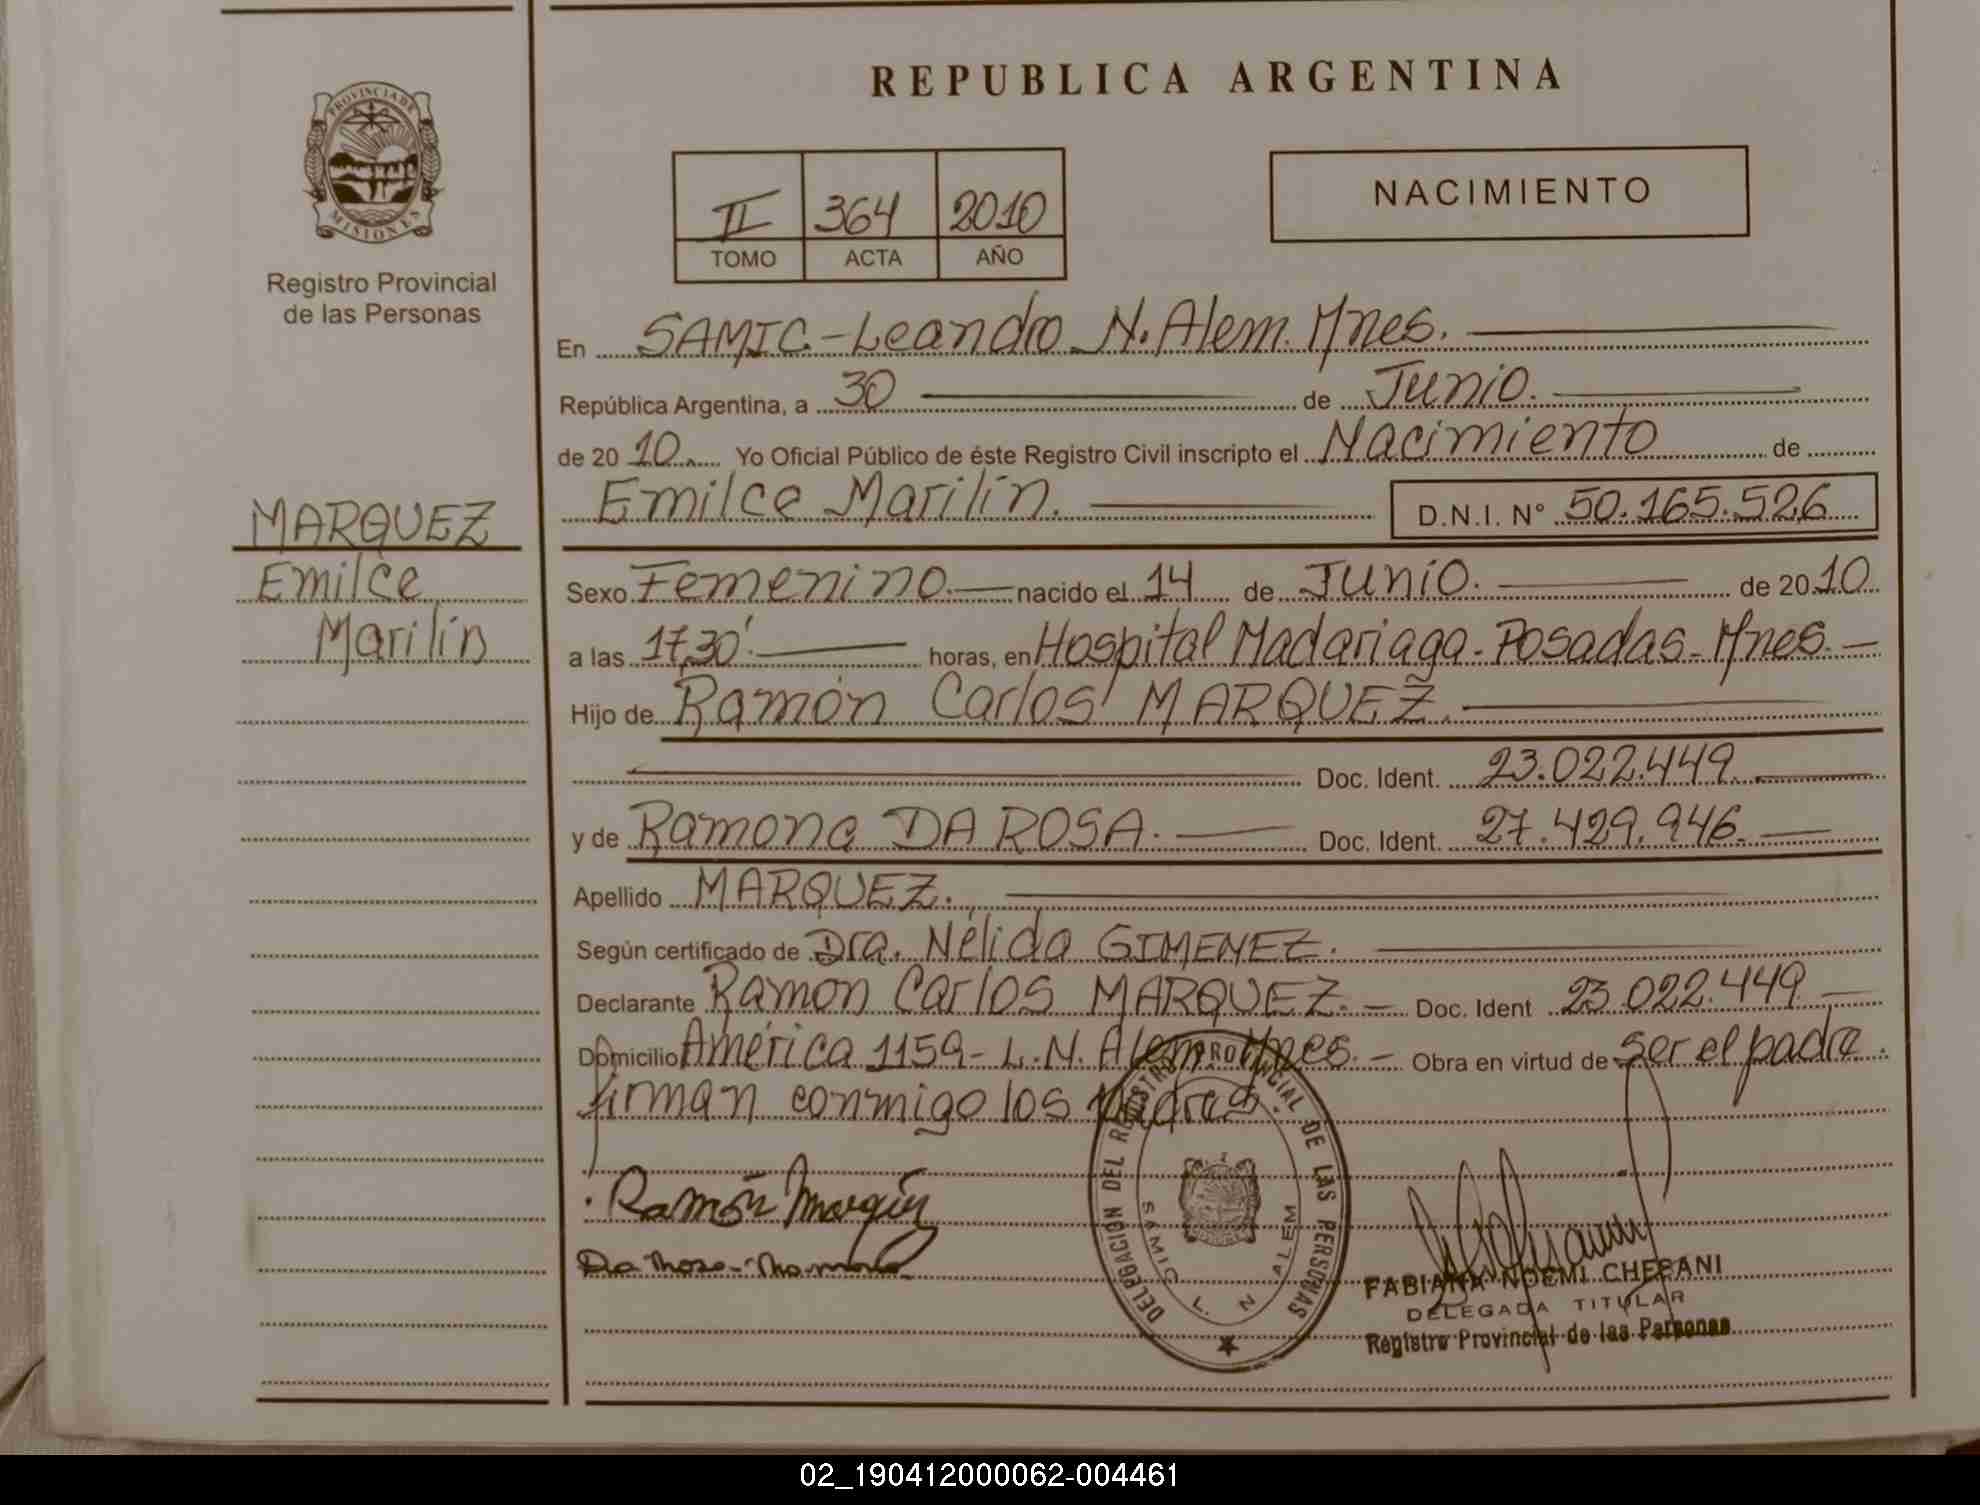 REPUBLICA ARGENTINA
PROVINCIA DE
MISIONES
Registro Provincial
de las Personas
II 364 2010
TOMO ACTA AÑO
NACIMIENTO
En SAMIC-Leandro N. Alem. Mnes.
República Argentina, a 30 de Junio.
de 2010. Yo Oficial Público de éste Registro Civil inscripto el Nacimiento de
Emilce Marilín. D.N.I. N° 50.165.526
MARQUEZ
Emilce
Marilín
Sexo Femenino.- nacido el 14 de Junio. de 2010
a las 17,30' horas, en Hospital Madariaga-Posadas-Mnes.-
Hijo de Ramón Carlos MARQUEZ.
Doc. Ident. 23.022.449.
y de Ramona DA ROSA. Doc. Ident. 27.429.946.
Apellido MARQUEZ.
Según certificado de Dra. Nélida GIMENEZ.
Declarante Ramon Carlos MARQUEZ.- Doc. Ident 23.022.449
Domicilio América 1159- L.N. Alem Mnes.- Obra en virtud de ser el padre.
firman conmigo los Padres.
Ramón Marquez
Da Rosa-Ramona
DELEGACION DEL REGISTRO PROVINCIAL DE LAS PERSONAS
SAMIC L. N. ALEM
FABIANA NOEMI CHEPANI
DELEGADA TITULAR
Registro Provincial de las Personas
02_190412000062-004461